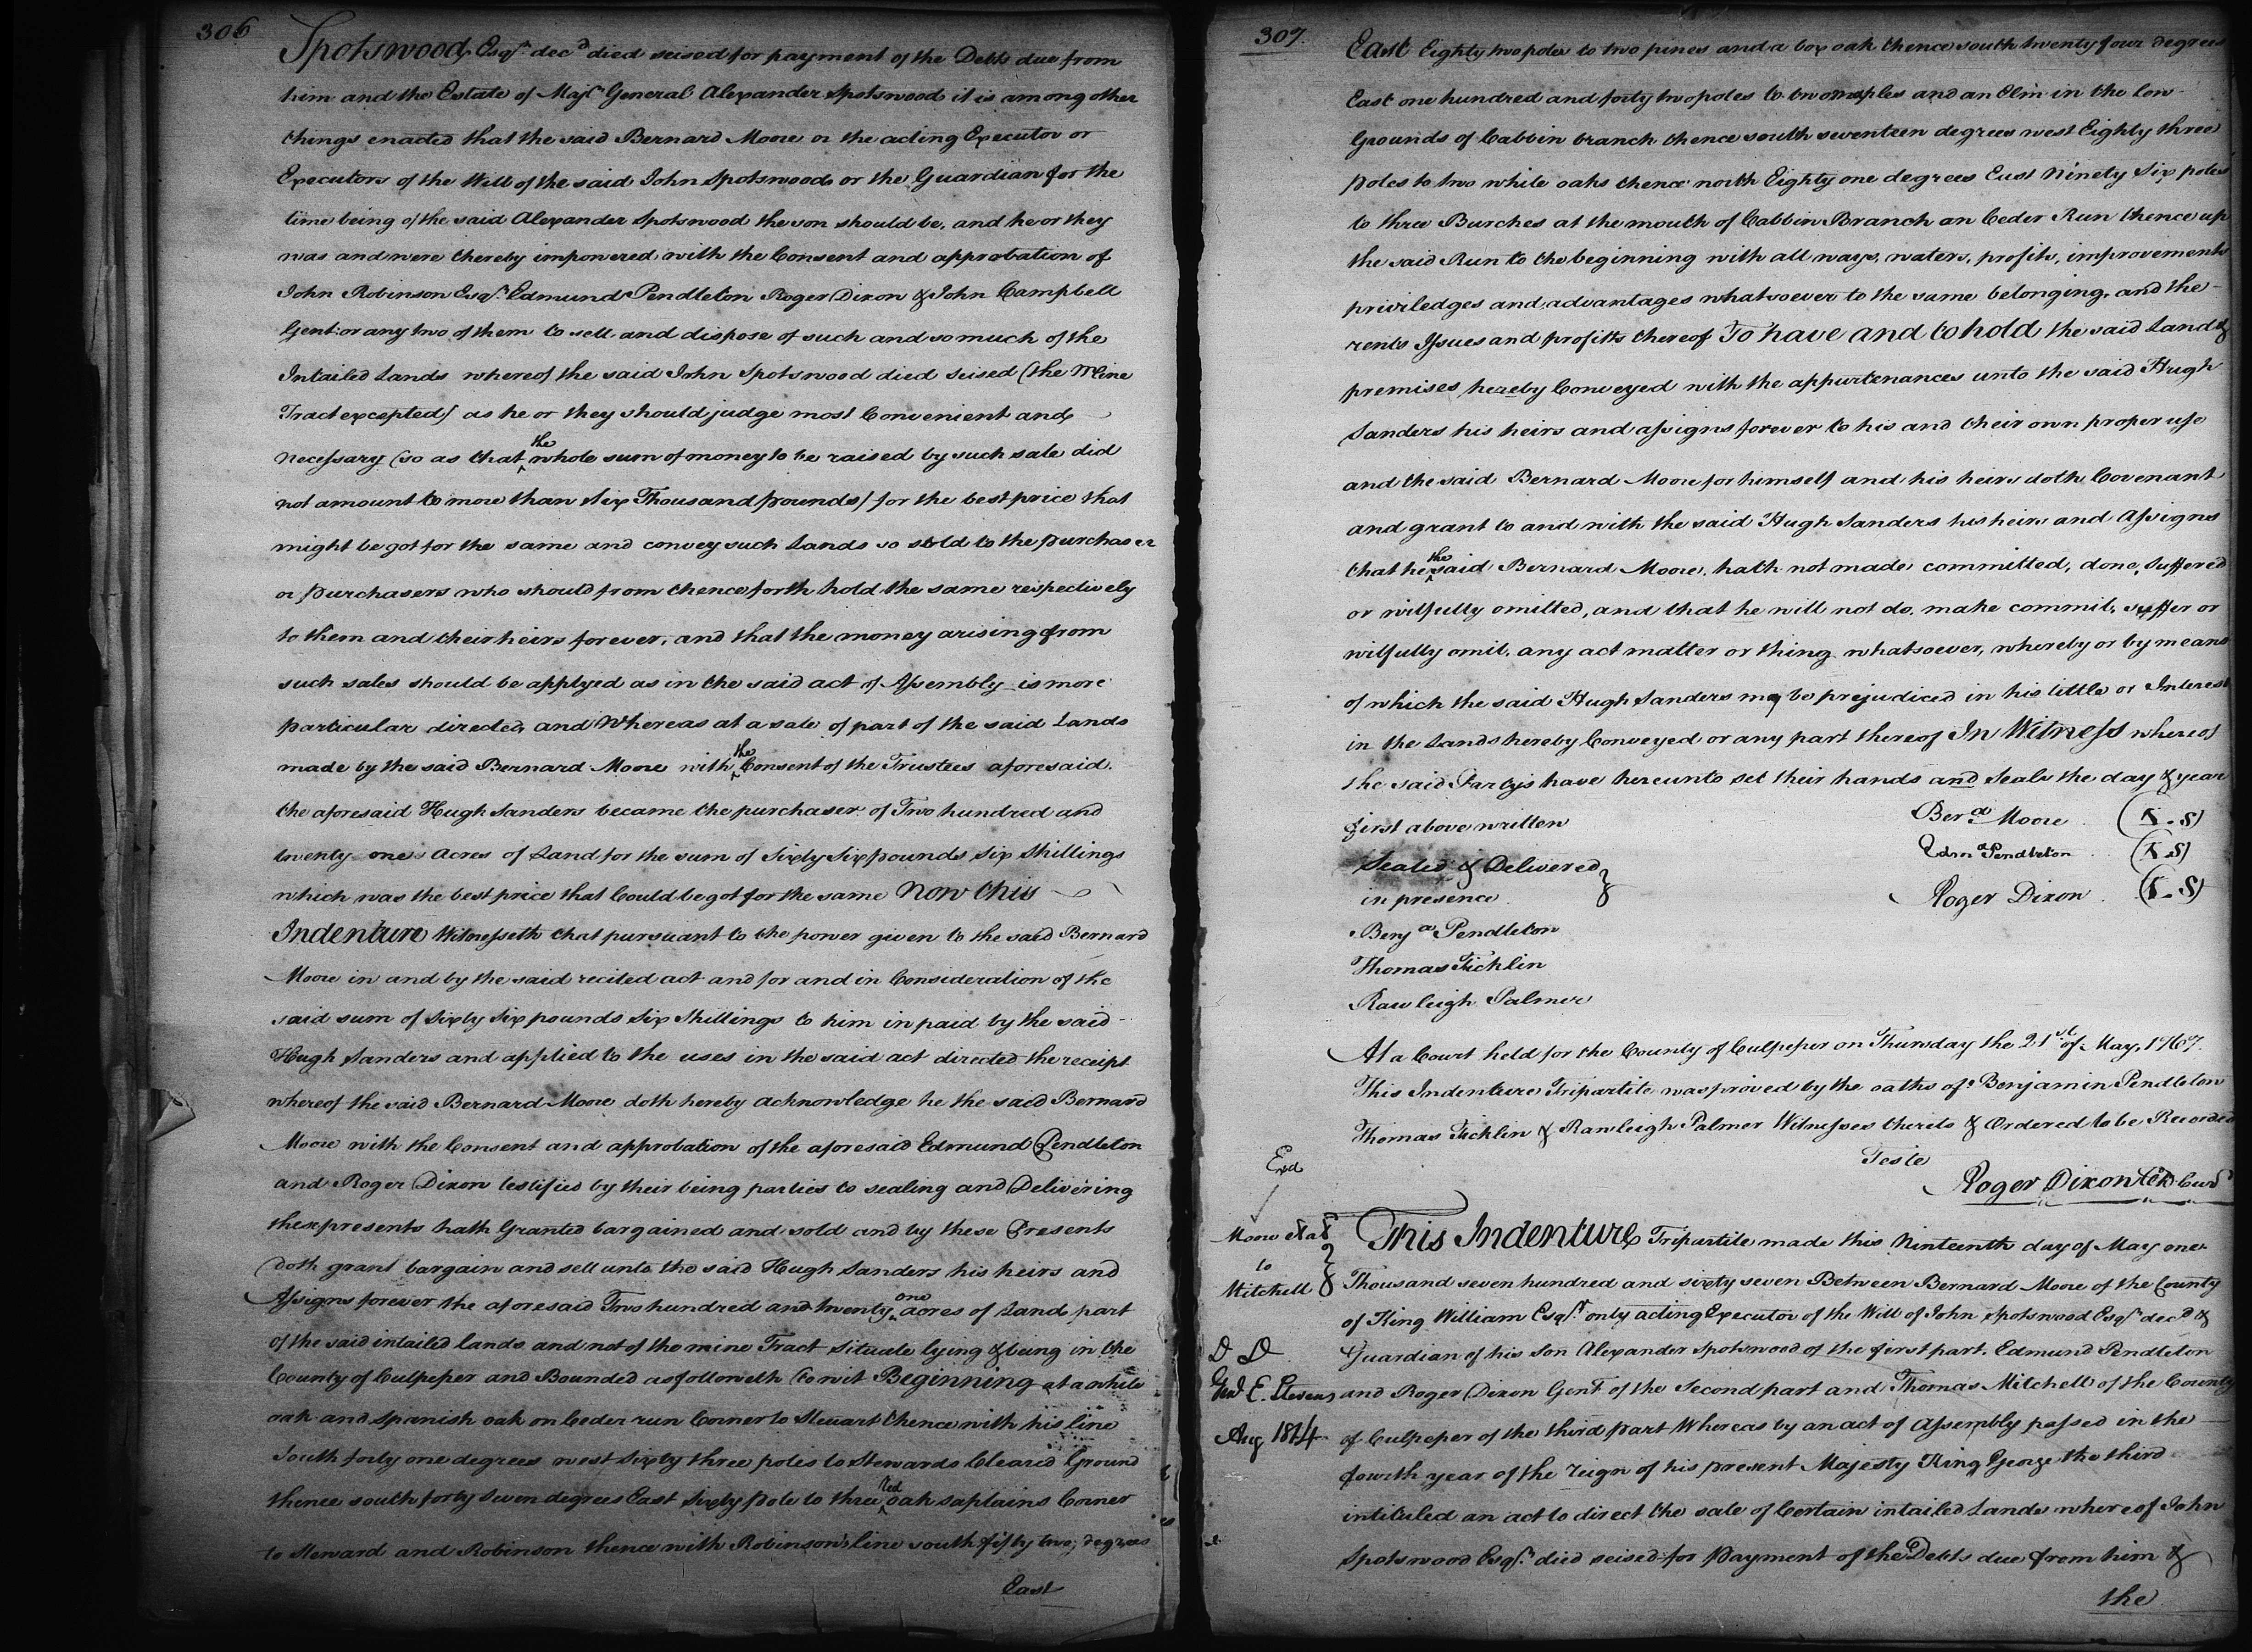 306
Spotswood Esqr. decd died seised for payment of the Debts due from
him and the Estate of Majr General Alexander Spotswood it is among other
things enacted that the said Bernard Moore or the acting Executor or
Executors of the Will of the said John Spotswood or the Guardian for the
time being of the said Alexander Spotswood the son should be, and he or they
was and were thereby impowered with the Consent and approbation of
John Robinson Esqr. Edmund Pendleton Roger Dixon & John Campbell
Gent: or any two of them to sell and dispose of such and so much of the
Intailed Lands whereof the said John Spotswood died Seised (the Mine
Tract excepted) as he or they should judge most Convenient and
necessary (so as that the whole sum of money to be raised by such sale did
not amount to more than Six Thousand pounds) for the best price that
might be got for the same and convey such Lands so sold to the purchaser
or purchasers who should from thence forth hold the same respectively
to them and their heirs forever, and that the money arising from
such sales should be applyed as in the said act of Assembly is more
particular directed, and Whereas at a sale of part of the said Lands
made by the said Bernard Moore with the Consent of the Trustees aforesaid.
the aforesaid Hugh Sanders became the purchaser of Two hundred and
twenty one Acres of Land for the sum of Sixty Six pounds Six Shillings
which was the best price that Could be got for the same Now this
Indenture Witnesseth that pursuant to the power given to the said Bernard
Moore in and by the said recited act and for and in Consideration of the
said sum of Sixty Six pounds Six Shillings to him in paid by the said
Hugh Sanders and applied to the uses in the said act directed the receipt
whereof the said Bernard Moore doth hereby acknowledge he the said Bernard
Moore with the Consent and approbation of the aforesaid Edmund Pendleton
and Roger Dixon testified by their being parties to sealing and Delivering
these presents hath Granted bargained and sold and by these Presents
doth grant bargain and sell unto the said Hugh Sanders his heirs and
Assigns forever the aforesaid Two hundred and twenty one acres of Land part
of the said intailed lands and not of the mine Tract Situate lying & being in the
County of Culpeper and Bounded as followeth (to wit Beginning at a white
oak and Spanish oak on Ceder run Corner to Steuart thence with his line
South forty one degrees west Sixty three poles to Stewards Cleared Ground
thence south forty Seven degrees East Sixty pole to three red oak saplains Corner
to Steward and Robinson thence with Robinson's line south fifty two, degrees
East
307.
East Eighty two poles to two pines and a box oak thence south twenty four degrees
East one hundred and forty two poles to two maples and an Elm in the low
Grounds of Cabbin branch thence south seventeen degrees west Eighty three
poles to two white oaks thence north Eighty one degrees East Ninety Six poles
to three Burches at the mouth of Cabbin Branch on Ceder Run thence up
the said Run to the beginning with all ways, waters, profits, improvements
priviledges and advantages whatsoever to the same belonging, and the
rents Issues and profitts thereof To have and to hold the said Land &
premises hereby Conveyed with the appurtenances unto the said Hugh
Sanders his heirs and assigns forever to his and their own proper use
and the said Bernard Moore for himself and his heirs doth, Covenant
and grant to and with the said Hugh Sanders his heirs and Assigns
that he the said Bernard Moore hath not made committed, done, suffered
or wilfully omitted, and that he will not do, make commit, suffer or
wilfully omit, any act matter or thing whatsoever, whereby or by means
of which the said Hugh Sanders may be prejudiced in his tittle or Interest
in the Lands hereby Conveyed or any part thereof In Witness whereof
the said Partys have hereunto set their hands and Seals the day & year
first above written
Berad Moore (L.S)
Edmd Pendleton (L.S)
Roger Dixon (L.S)
Sealed & Delivered
in presence
Benja Pendleton
Thomas Ficklin
Rawleigh Palmer
At a Court held for the County of Culpeper on Thursday the 21st of May, 1767.
This Indenture Tripartite was proved by the oaths of Benjamin Pendleton
Thomas Ficklin & Rawleigh Palmer Witnesses thereto & Ordered to be Recorded
Teste
Roger Dixon Clk Curs
Exd
Moore &al
to
Mitchell
D D
Genl E. Stevens
Aug 1814
This Indenture Tripartite made this Ninteenth day of May one
Thousand seven hundred and sixty seven Between Bernard Moore of the County
of King William Esqr. only acting Executor of the Will of John Spotswood Esqr decd &
Guardian of his Son Alexander Spotswood of the first part. Edmund Pendleton
and Roger Dixon Gent of the Second part and Thomas Mitchell of the County
of Culpeper of the third part Whereas by an act of Assembly passed in the
fourth year of the reign of his present Majesty King George the third
intituled an act to direct the sale of Certain intailed Lands whereof John
Spotswood Esqr. died seised for Payment of the Debts due from him &
the